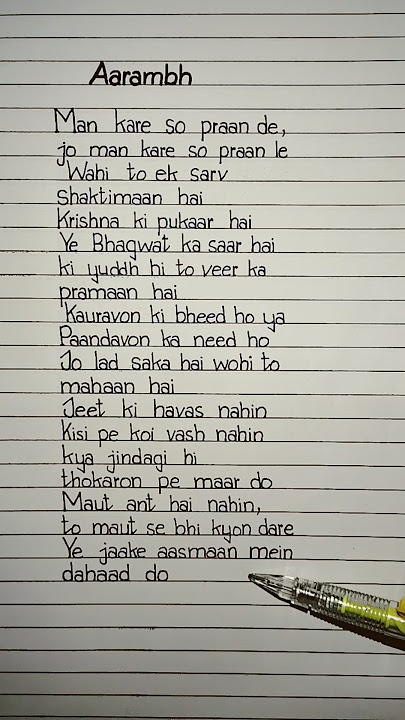 Aarambh
Man kare so praan de,
jo man kare so praan le
Wahi to ek sarv
shaktimaan hai
Krishna ki pukaar hai
Ye Bhagwat ka saar hai
ki yuddh hi to veer ka
pramaan hai
Kauravon ki bheed ho ya
Paandavon ka need ho
Jo lad saka hai wohi to
mahaan hai
Jeet ki havas nahin
Kisi pe koi vash nahin
kya jindagi hi
thokaron pe maar do
Maut ant hai nahin,
to maut se bhi kyon dare
Ye jaake aasmaan mein
dahaad do